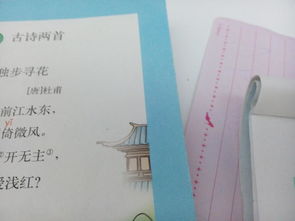 古诗两首
独步寻花
[唐]杜甫
前江水东，
yǐ
倚微风。
②开无主③，
爱浅红？